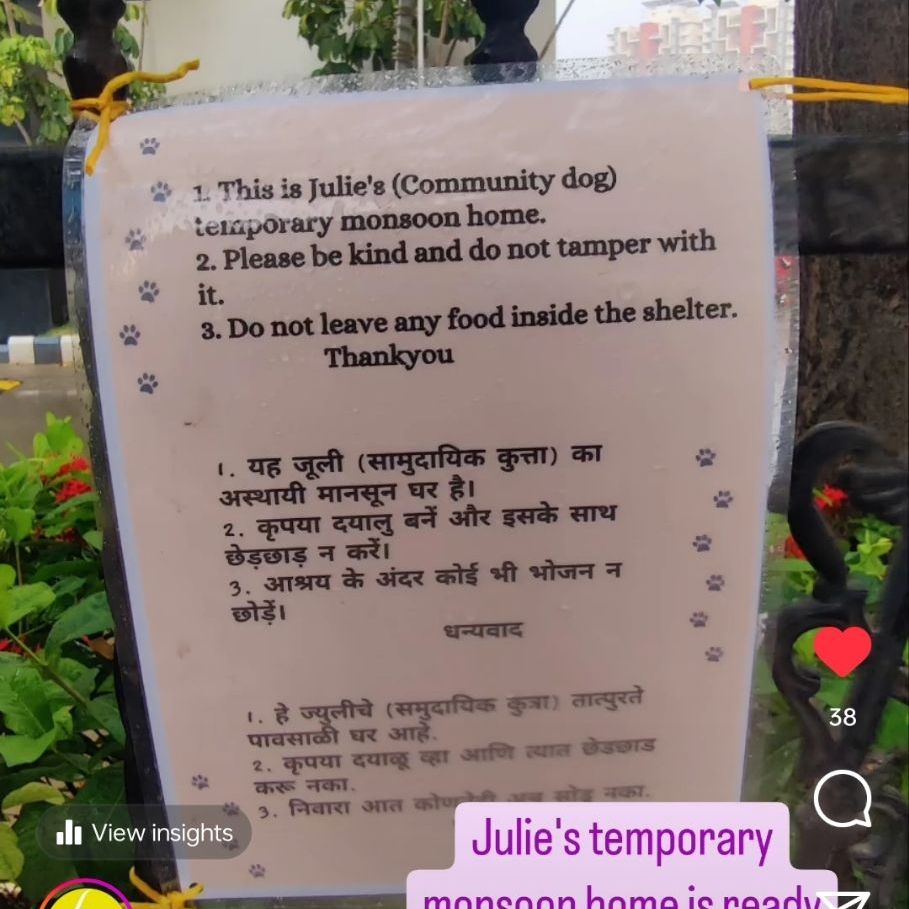 1. This is Julie's (Community dog)
temporary monsoon home.
2. Please be kind and do not tamper with
it.
3. Do not leave any food inside the shelter.
Thankyou
१. यह जूली (सामुदायिक कुत्ता) का
अस्थायी मानसून घर है।
2. कृपया दयालु बनें और इसके साथ
छेड़छाड़ न करें।
3. आश्रय के अंदर कोई भी भोजन न
छोड़ें।
धन्यवाद
१. हे ज्युलीचे (समुदायिक कुत्रा) तात्पुरते
पावसाळी घर आहे.
2. कृपया दयाळू व्हा आणि त्यात छेडछाड
करू नका.
3. निवारा आत नका.
38
View insights
Julie's temporary
monsoon home is ready